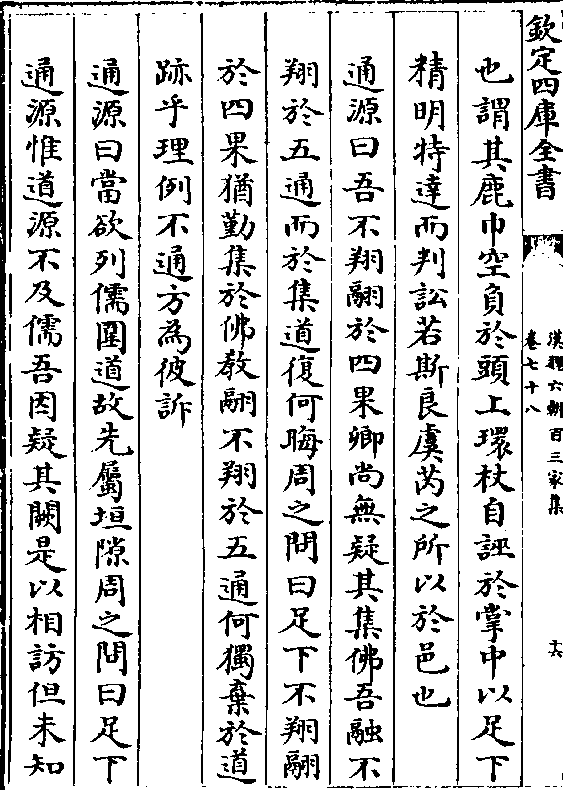 欽定四庫全書
漢魏六朝百三家集
卷七十八
十六
也謂其鹿巾空負於頭上環杖自誣於掌中以足下
精明特達而判訟若斯良虞芮之所以於邑也
通源曰吾不翔翮於四果卿尚無疑其集佛吾融不
翔於五通而於集道復何晦周之問曰足下不翔翮
於四果猶勤集於佛教翮不翔於五通何獨棄於道
跡乎理例不通方為彼訴
通源曰當欲列儒圍道故先屬垣隙周之問曰足下
通源惟道源不及儒吾因疑其闕是以相訪但未知